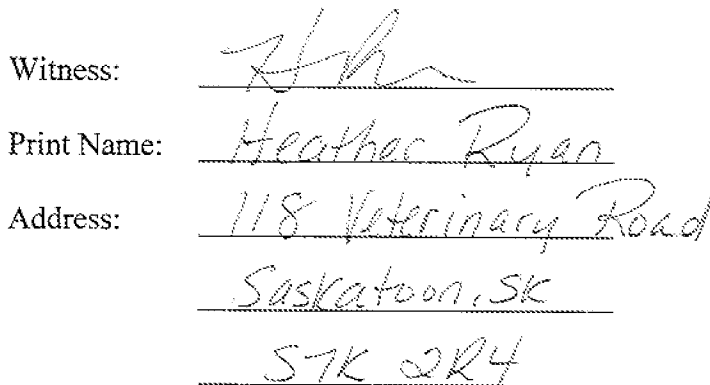 Witness:
Print Name: Heather Ryan
Address: 118 Veterinary Road
Saskatoon, SK
S7K 2R4